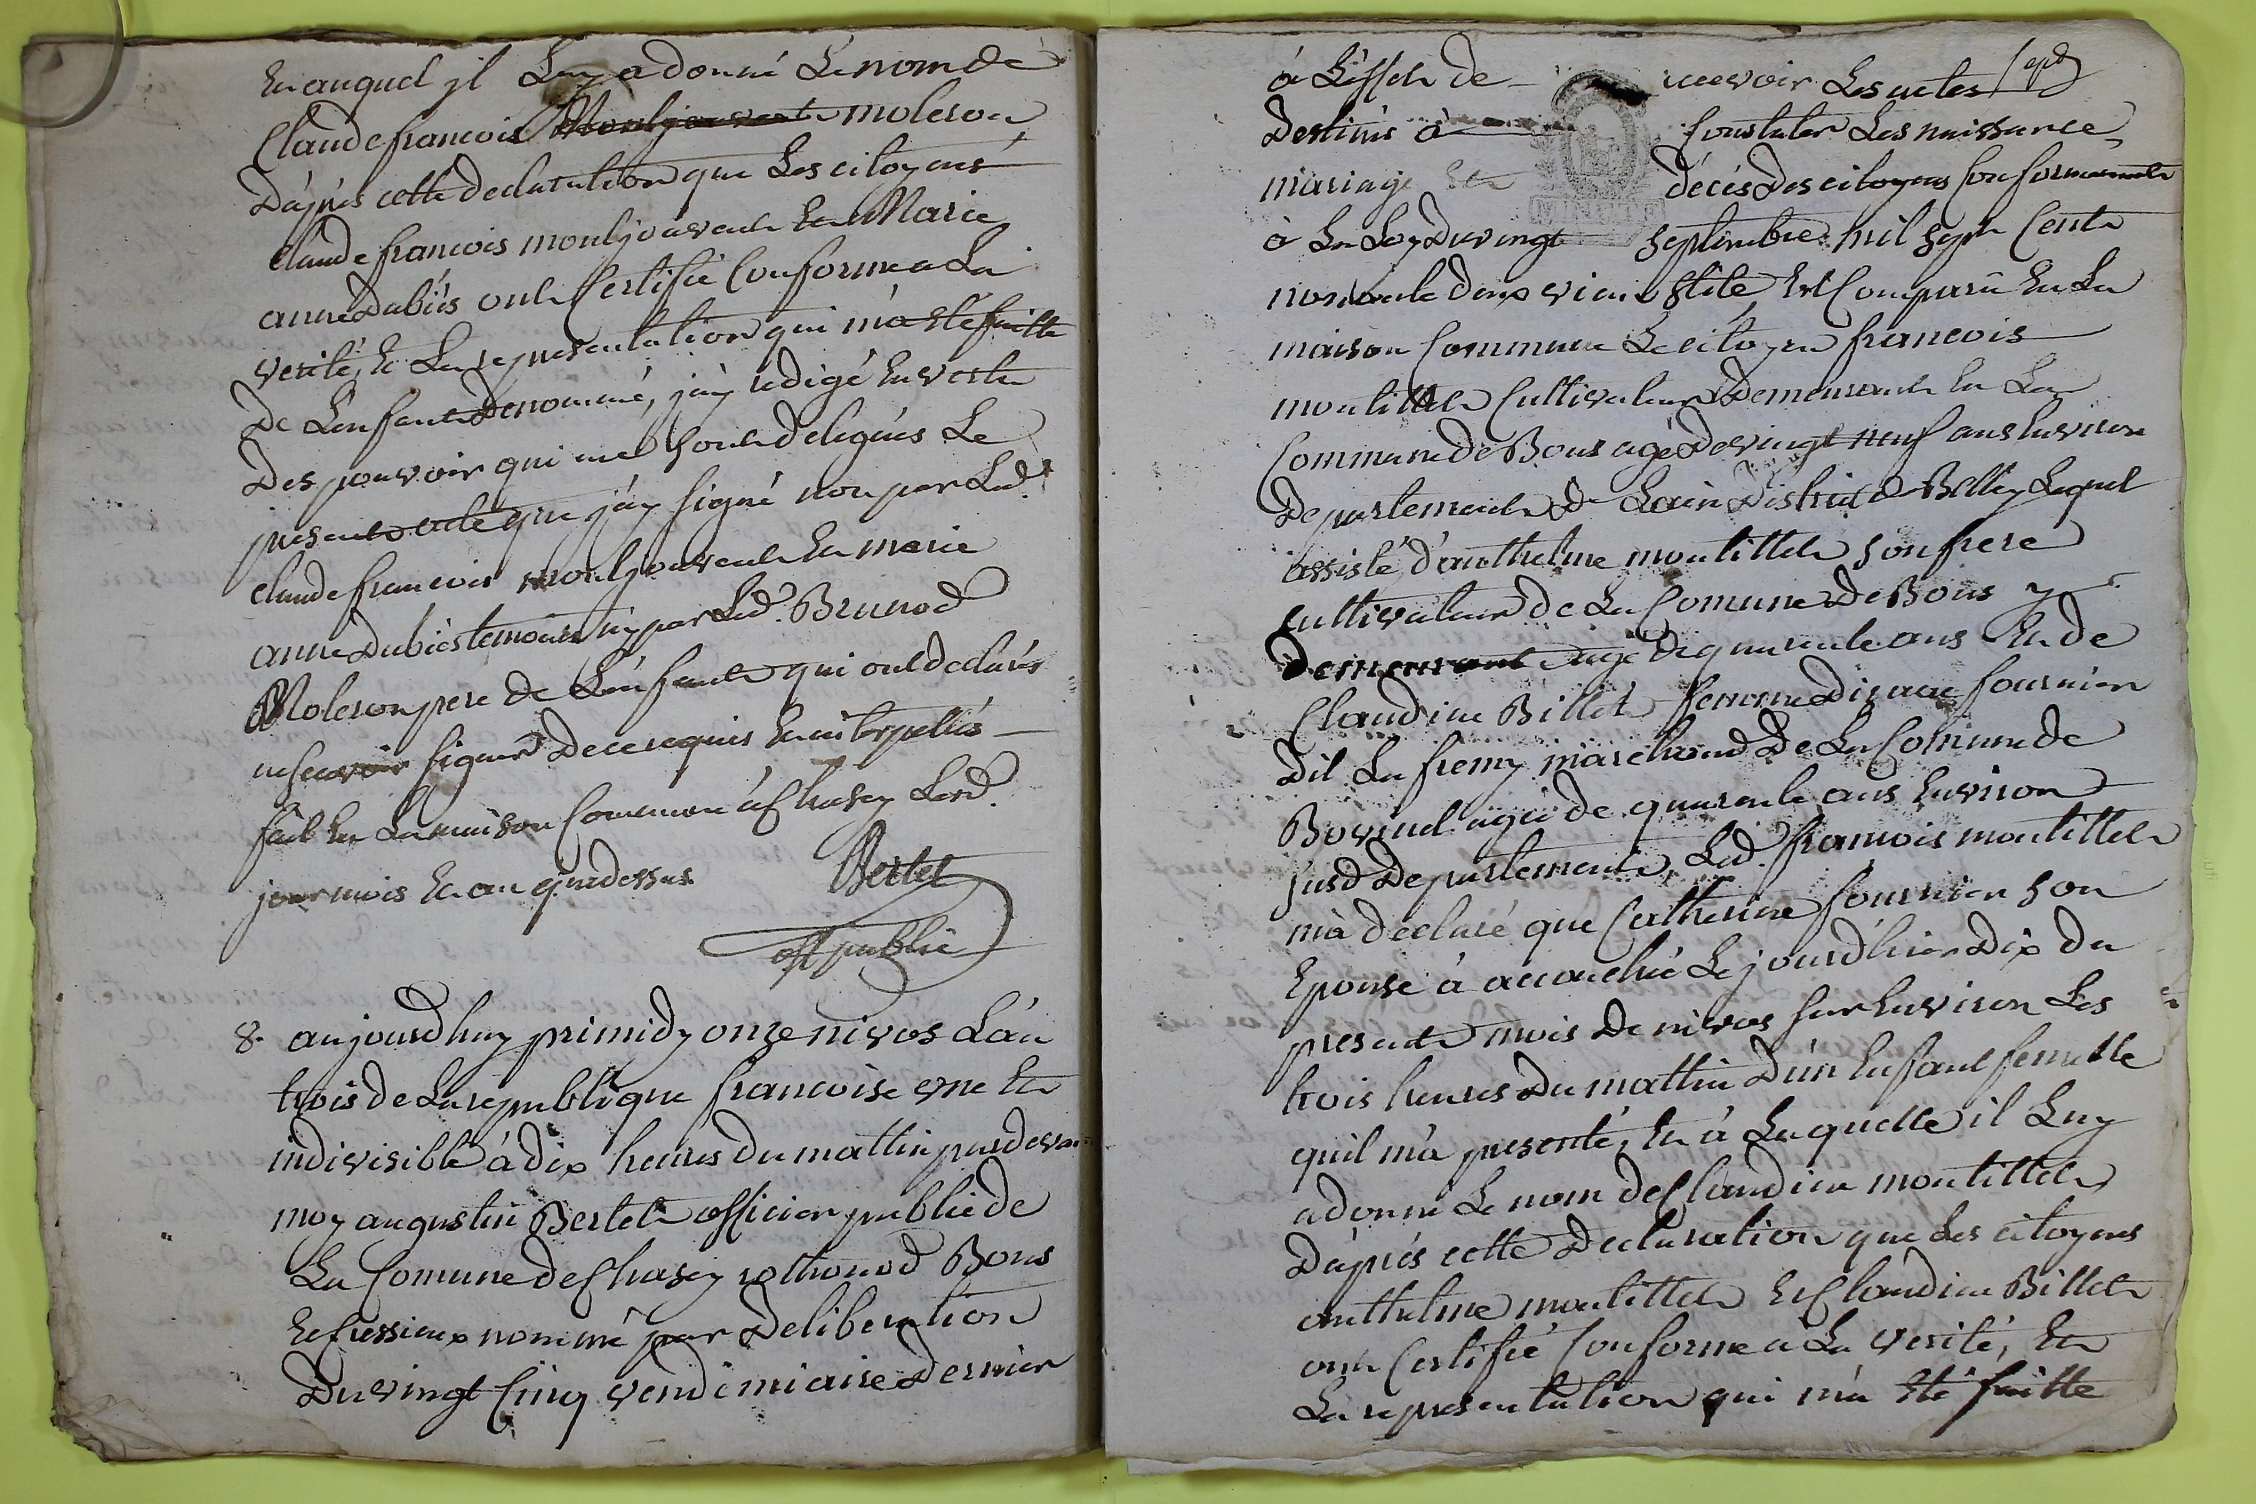 Et auquel jl Luy a donné Le nom de
Claude francois Montjouvent moleron
Dáprés cette declaration que Les citoyens
claude francois montjouvent Et Marie
anne Dubiés ont Certifié Conforme a La
verité, Et La representation qui ma eté faitte
De Lenfant Denommé, j'ay redigé En vertu
Des pouvoir qui me sont delegués Le
present acte que j'ay signé non par Led.t
claude francois montjouvent Et marie
anne Dubiés temoins ny par Led. Brunod
Moleron pere de L'enfant qui ont declarés
ne scavoir signer De ce requis Et interpellés
fait En La maison Commune à Chasey Lesd.
jour mois Et an que dessus
Bertet
off publie
8. aujourdhuy primidy onze nivos Lán
trois de La republique francoise vne Et
indivisible à dix heures du mattin pardevan
moy augustin Bertet officier publie de
La Comune de Chasey rothonod Bons
Et Cressieux nommé par Deliberation
Du vingt Cinq vendemiaire Dernier
à L'effet de recevoir Les actes sept
Destinés à Constater Les naissance
mariage Et décés Des citoyens Conformement
à La Loy Du vingt septembre mil sept Cent
nonante deux vieux stile, Est Comparu En La
maison Commune Le citoyen francois
montittet Cultivateur Demeurant En La
Commune de Bons agé De vingt neuf ans Environ
Departement de Lain District de Belley Lequel
assisté d'anthelme montillet son frere
cultivateur de La Comune De Bons y
Demeurant agé de quarante ans Et de
Claudine Billet femme Disaac fournier
Dit La fremy marchand De La Comune de
Bovinel agée de quarante ans Environ
susd Departement, Led. francois montillet
m'a declaré que Catherine fournier son
Epouse à accouchée Le jourd'hier Dix du
present mois De nivos sur Environ Les
trois heures Du mattin D'un Enfant femelle
quil m'a presenté, Et à Laquelle il Luy
a donné Le nom de Claudine montillet
Dáprés cette Declaration que Les citoyens
anthelme montillet Et Claudine Billet
ont Certifié Conforme a La verité, Et
La representation qui m'a Eté faitte